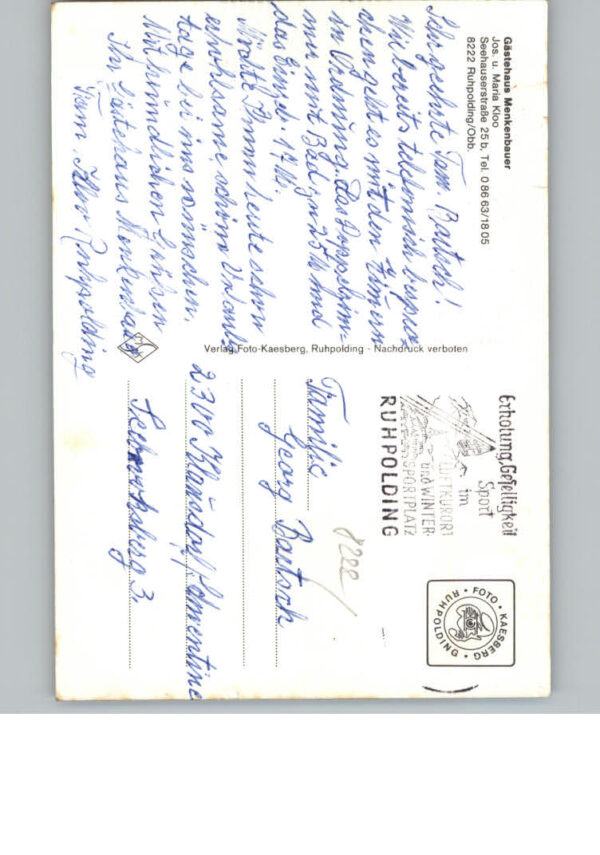 Gästehaus Menkenbauer
Jos. u. Maria Kloo
Seehauserstraße 25 b, Tel. 0 86 63/18 05
8222 Ruhpolding/Obb.
Sehr geehrte Fam. Bartsch!
Wie bereits telefonisch bespro-
chen geht es mit den Zimmern
in Ordnung. Das Doppelzim-
mer mit Bad zu 25 M und
das Einzel. 17 M.
Möchte Ihnen heute schon
erholsame, schöne Urlaubs
tage bei uns wünschen.
Mit freundlichen Grüßen
Ihr Gästehaus Menkenbauer
Fam. Kloo Ruhpolding
Verlag Foto-Kaesberg, Ruhpolding - Nachdruck verboten
Erholung, Geselligkeit
Sport
im
LUFTKURORT
und WINTER-
SPORTPLATZ
RUHPOLDING
FOTO · KAESBERG · RUHPOLDING
8222
Familie
Georg Bartsch
2300 Klausdorf
3.